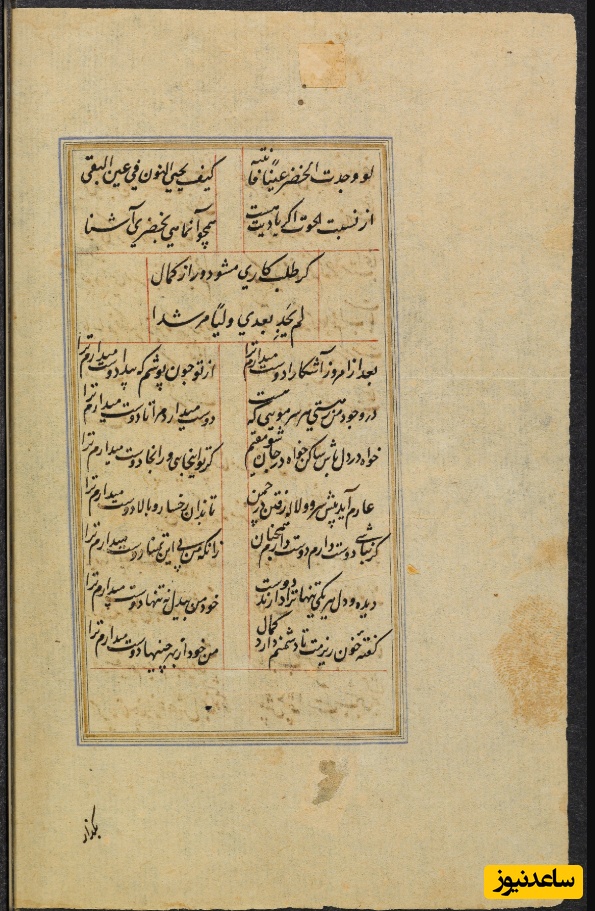 لو وجدت الخضر عینا فاتنه کیف یحیی النون فی عین البقی
از نسبت الحوت اگر یادیت هست همچو آن ماهی بخضری آشنا
کر طلب کاری مشو دور از کمال
لم یجد بعدی ولیا مرشدا
بعد از امروز آشکارا دوست میدارم ترا از تو چون پوشم که بیدا دوست میدارم ترا
در وجود من ز هستی هر سر مویی که هست دوست میدارد مرا تا دوست میدارم ترا
خواه در دل باش ساکن خواه در جان شو مقیم کر تو اینجایی ور آنجا دوست میدارم ترا
عارم آید پیش سرو و لاله رفتن در چمن تا بدان رخسار و بالا دوست میدارم ترا
کر نباشی دوست دارم دوست دارم همچنان زانکه من بی این تمنا دوست میدارم ترا
دیده و دل هر یکی تنها ترا دارند دوست خود من بیدل نه تنها دوست میدارم ترا
کفته خون ریزمت تا دشمنم دارد کمال من خود از بهر چنینها دوست میدارم ترا
بکذار
ساعدنیوز